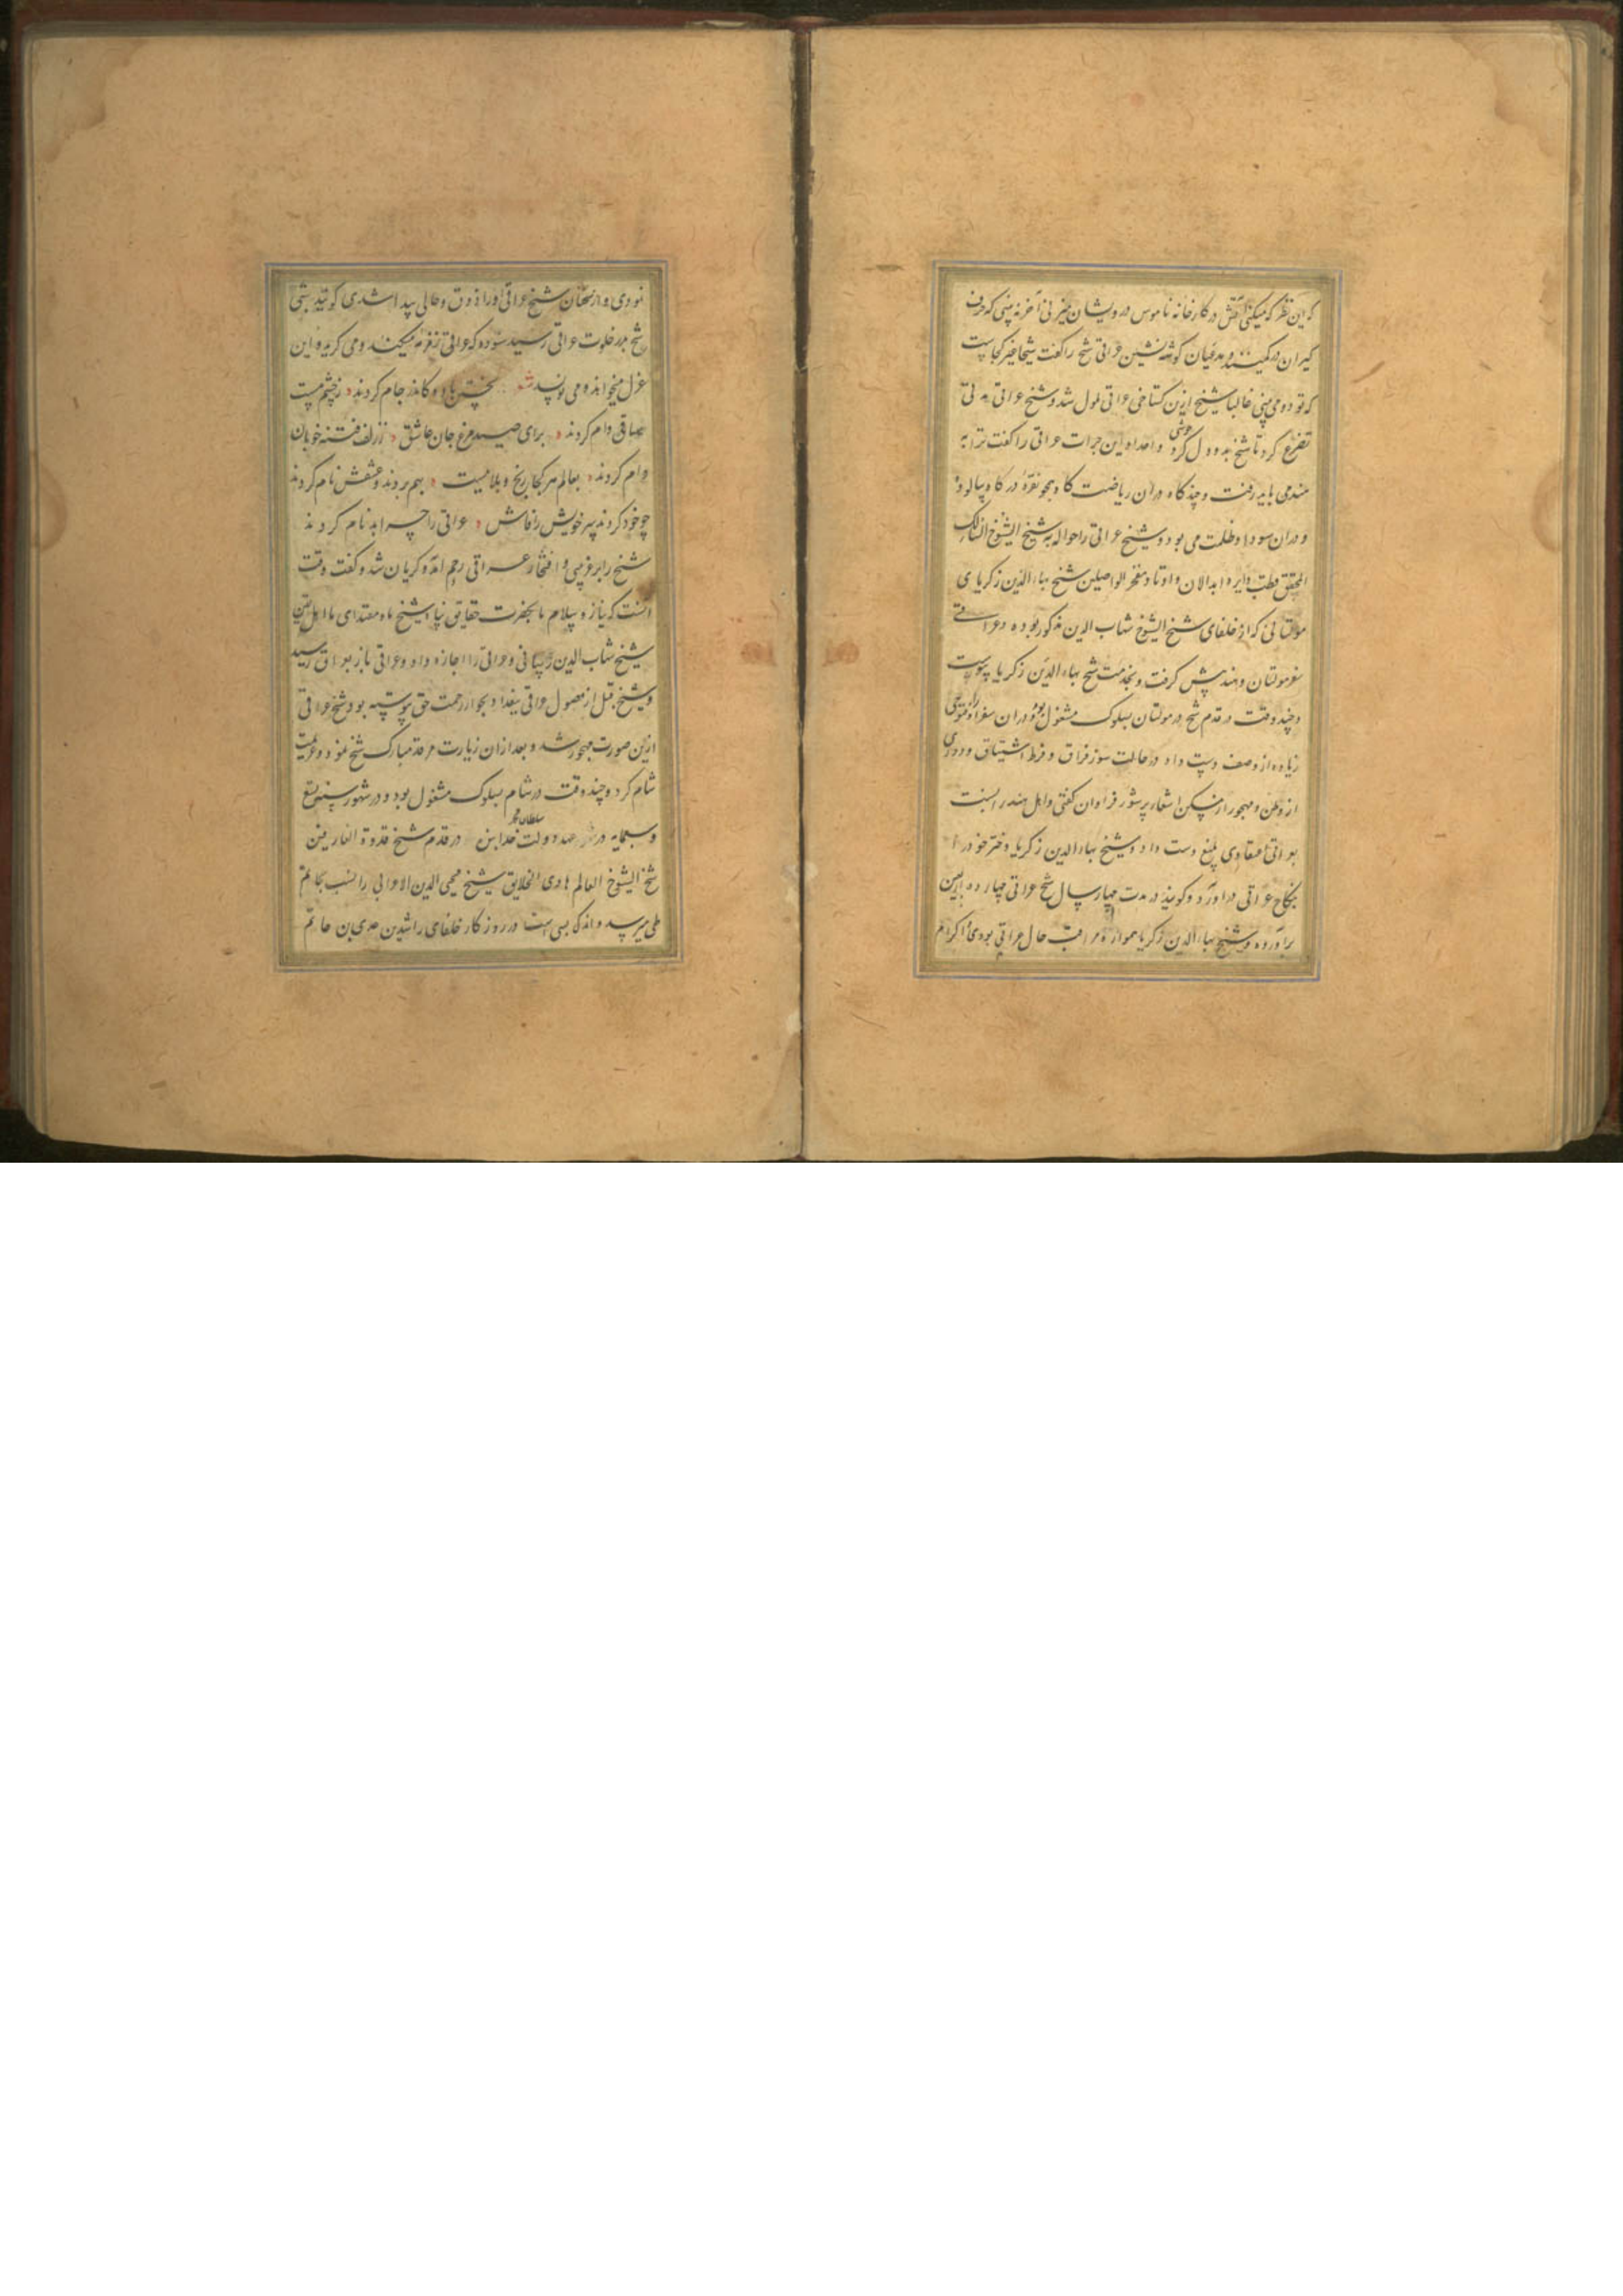 که این نظر که میکنی آتش در کارخانه ناموس درویشان میزنی آخر نه بینی که حرف
گیران در کمینند و مدعیان گوشه نشین عراقی شیخ را گفت شیخا غیر کجاست
که تو دو می بینی غالبا شیخ ازین گستاخی عراقی ملول شد و شیخ عراقی به
تضرع کرد تا شیخ بدو دل خوش کرد و این جرات عراقی را گفت ترا به
رفت و چند گاه در آن ریاضت نقره در گاه
و در آن سودا و ظلمت می بود و شیخ عراقی را حواله به شیخ الشیوخ السالک
المحقق قطب دایره ابدالان و اوتاد مفخر الواصلین شیخ بهاء الدین زکریای
مولتانی که از خلفای شیخ الشیوخ شهاب الدین مذکور بوده و عراقی
سفر مولتان و هند پیش گرفت و بخدمت شیخ بهاء الدین زکریا پیوست
و چند وقت در قدم شیخ در مولتان بسلوک مشغول بود و در آن سفر او را فتوحی
زیاده از وصف دست داد در حالت سوز فراق و فرط اشتیاق و دوری
از وطن و مهجور از مسکن اشعار پرشور فراوان گفتی و اهل هند را نسبت
بعراقی اعتقادی بلیغ دست داد و شیخ بهاء الدین زکریا دختر خود را
بنکاح عراقی در آورد و گویند در مدت چهار سال شیخ عراقی چهارده اربعین
بر آورده و شیخ بهاء الدین زکریا همواره مراقب حال عراقی بودی و اکرام
نمودی و از سخنان شیخ عراقی او را ذوق و حالی پیدا شدی گویند شبی
شیخ بدر خلوت عراقی رسید شنوده که عراقی زمزمه میکند و می گرید و این
غزل میخواند و می نویسد نخستین باده کاندر جام کردند ز چشم مست
ساقی وام کردند برای صید مرغ جان عاشق ز زلف فتنه خوبان
دام کردند بعالم هر کجا رنج و بلائیست بهم بردند و عشقش نام کردند
چو خود کردند سر خویش را فاش عراقی را چرا بدنام کردند
شیخ را بر غریبی و افتقار عراقی رحم آمد و گریان شد و گفت وقت
آنست که نیاز و سلام ما بحضرت حقایق پناه شیخ ما و مقتدای ما اهل یقین
شیخ شهاب الدین رسانی و عراقی را اجازه داد و عراقی باز بعراق رسید
و شیخ قبل از وصول عراقی ببغداد بجوار رحمت حق پیوسته بود شیخ عراقی
ازین صورت مهجور شد و بعد از آن زیارت مرقد مبارک شیخ نمود و عزیمت
شام کرد و چند وقت در شام بسلوک مشغول بود و در شهور سنه تسع
و سبعمایه در عهد دولت سلطان محمد خدابنده در قدم شیخ قدوة العارفین
شیخ الشیوخ العالم هادی الخلایق شیخ محیی الدین الاعرابی را نسب بحاتم
طی میرسد و اندک بسی است در روزگار خلفای راشدین عدی بن حاتم